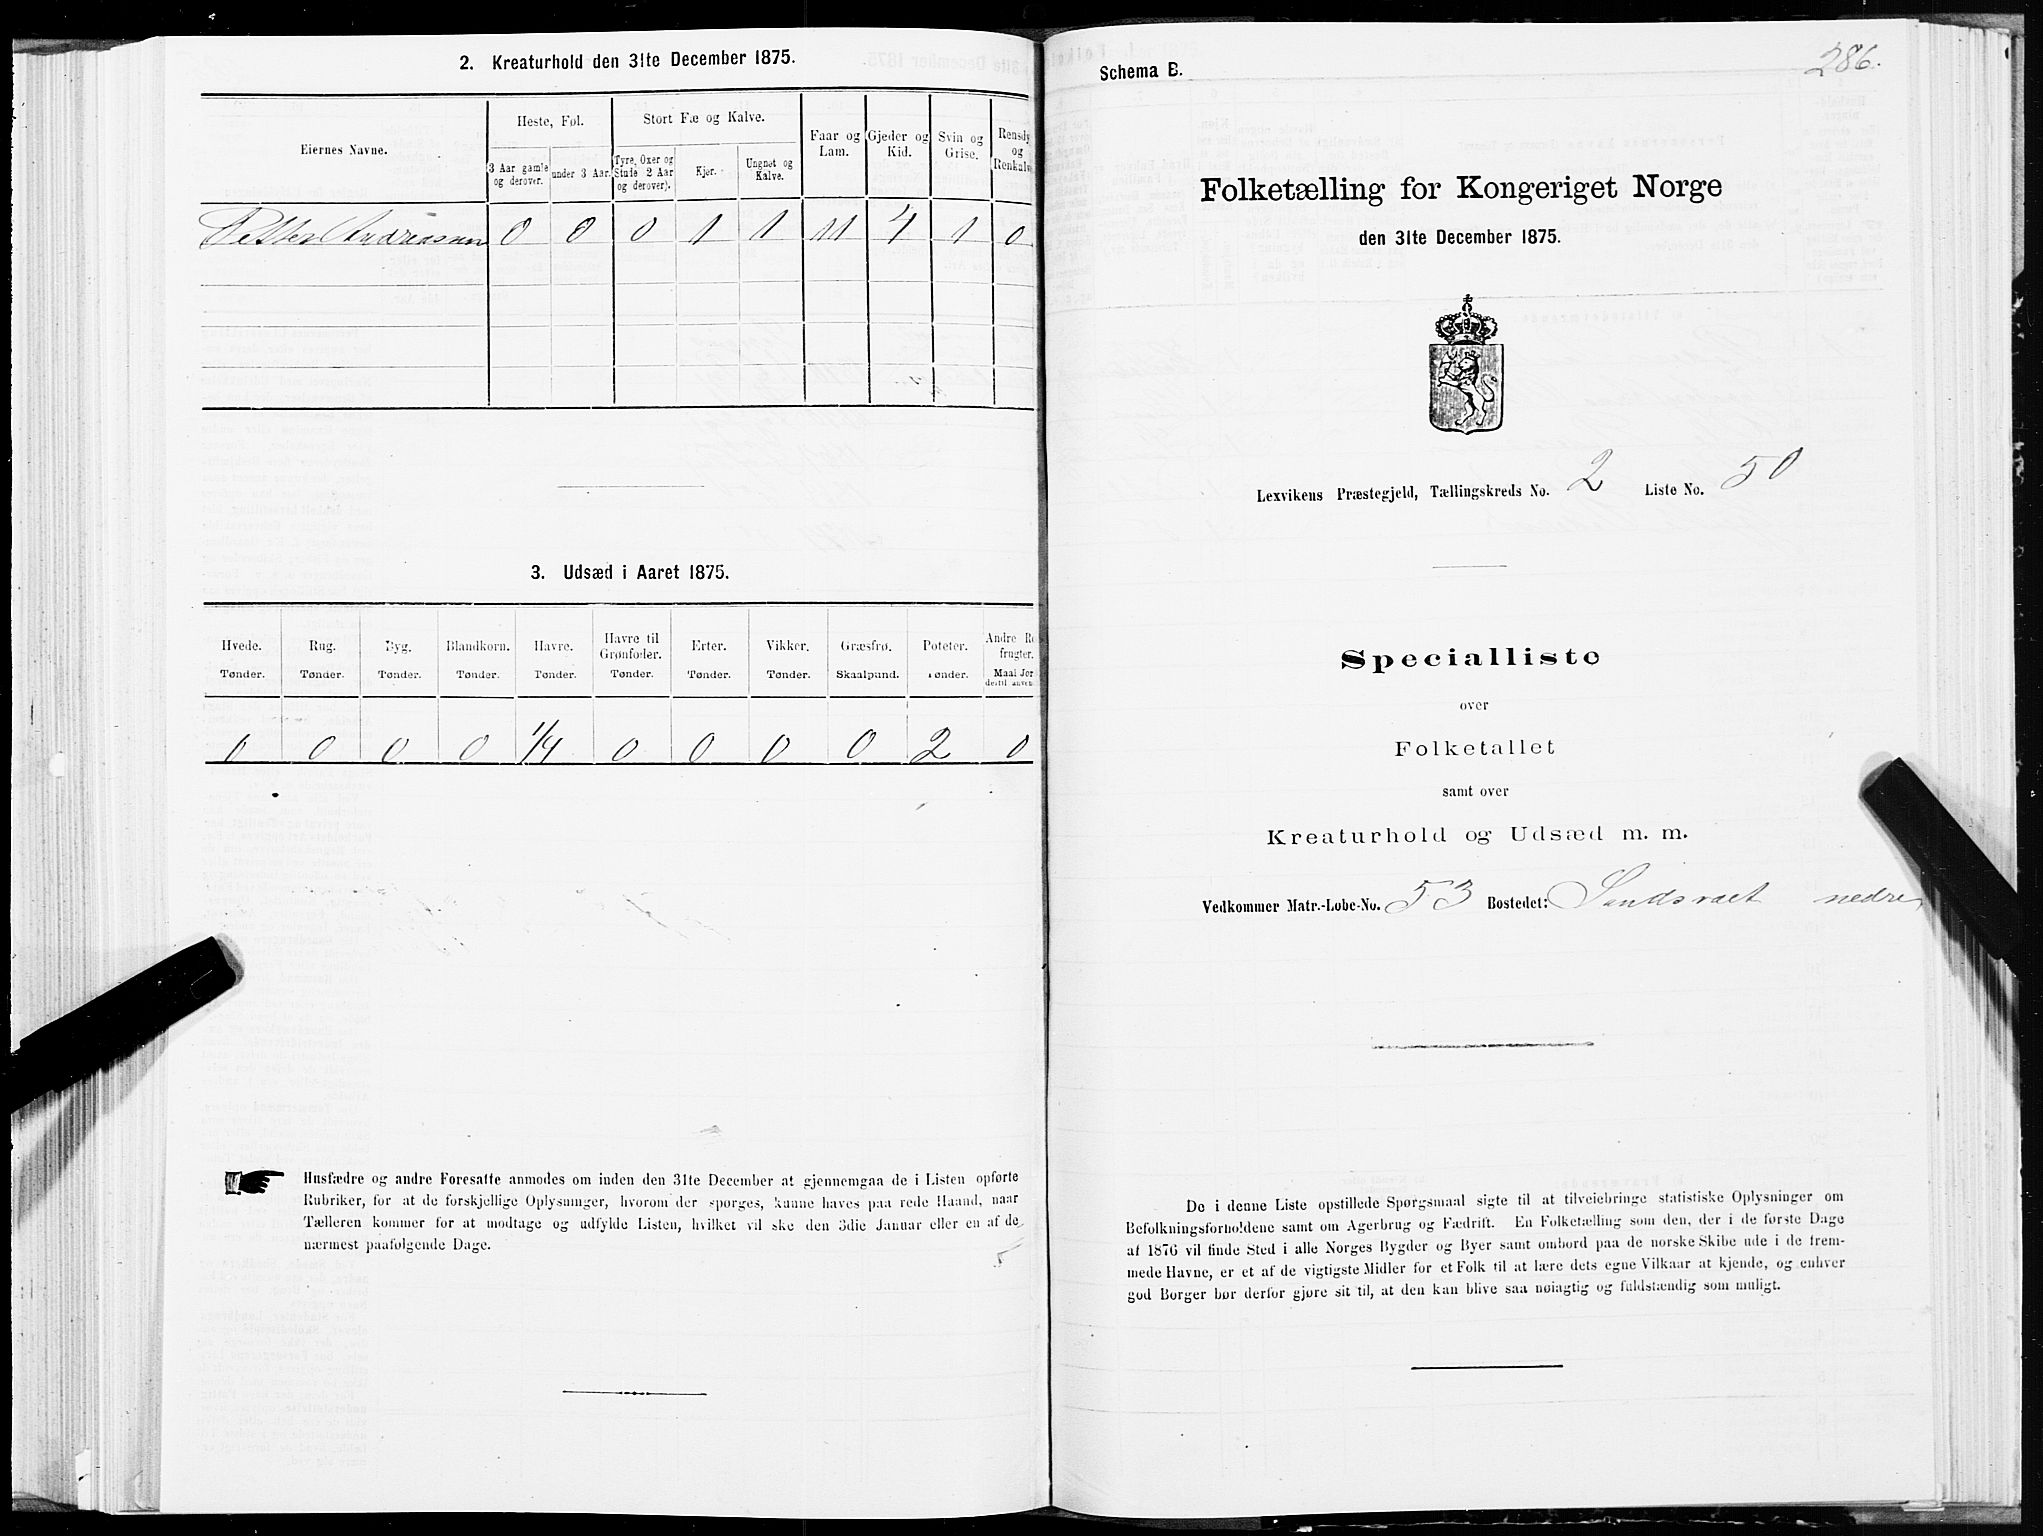 2. Kreaturhold den 31te December 1875.
Eiernes Navne.
Heste, Føl.
Stort Fæ og Kalve.
Faar og Lam.
Gjeder og Kid.
Svin og Grise.
Rensdy
og
Renkalve
3 Aar gamle og derover.
under 3 Aar.
Tyre, Oxer og Stude 2 Aar og derover).
Kjør.
Ungnøt og Kalve.
Petter Andreassen 0 0 0 1 1 11 4 1 0
3. Udsæd i Aaret 1875.
Hvede. Rug. Byg. Blandkorn. Havre. Havre til Grønfoder. Erter. Vikker. Græsfrø. Poteter. Andre Ro
frugter.
Tønder. Tønder. Tønder. Tønder. Tønder. Tønder. Tønder. Tønder. Skaalpund. Tønder. Maal Jor
destil anven
0 0 0 0 1/4 0 0 0 0 2 0
Husfædre og andre Foresatte anmodes om inden den 31te December at gjennemgaa de i Listen opførte
Rubriker, for at de forskjellige Oplysninger, hvorom der spørges, kunne haves paa rede Haand, naar
Tælleren kommer for at modtage og udfylde Listen, hvilket vil ske den 3die Januar eller en af de
nærmest paafølgende Dage.
5
Schema B.
286.
Folketælling for Kongeriget Norge
den 31te December 1875.
Lexvikens Præstegjeld, Tællingskreds No. 2 Liste No. 50
Specialliste
over
Folketallet
samt over
Kreaturhold og Udsæd m. m.
Vedkommer Matr.-Løbe-No. 53 Bostedet: Sundsvaet nedre
De i denne Liste opstillede Spørgsmaal sigte til at tilveiebringe statistiske Oplysninger om
Befolkningsforholdene samt om Agerbrug og Fædrift. En Folketælling som den, der i de første Dage
af 1876 vil finde Sted i alle Norges Bygder og Byer samt ombord paa de norske Skibe ude i de frem-
mede Havne, er et af de vigtigste Midler for et Folk til at lære dets egne Vilkaar at kjende, og enhver
god Borger bør derfor gjøre sit til, at den kan blive saa nøiagtig og fuldstændig som muligt.